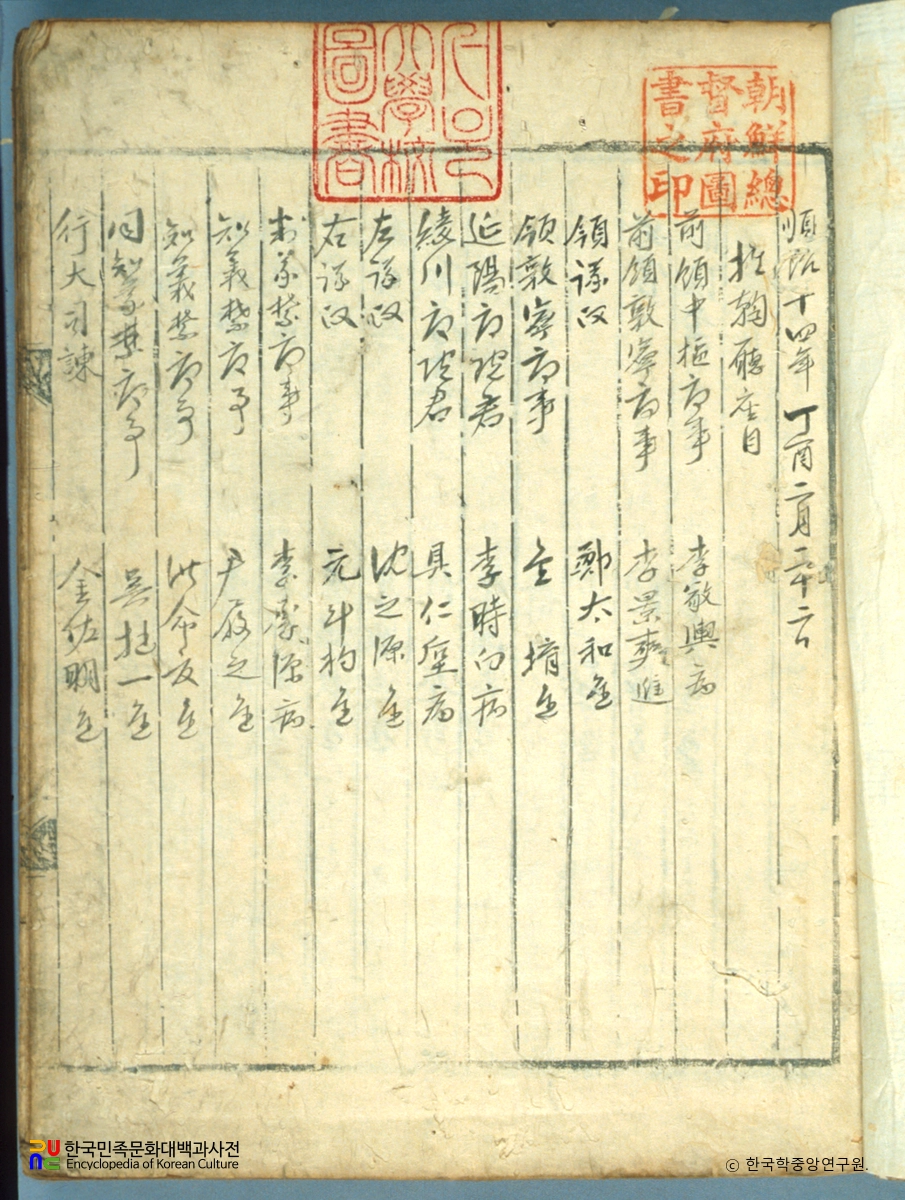 朝鮮總
督府圖
書之印
大學校
圖書
順治十四年 丁酉二月二十六
推鞫廳座目
前領中樞府事 李敬輿 病
前領敦寧府事 李景奭 進
領議政 鄭太和 進
領敦寧府事 金堉 進
延陽府院君 李時白 病
綾川府院君 具仁垕 病
左議政 沈之源 進
右議政 元斗杓 進
判義禁府事 李
知義禁府事 尹履之 進
知義禁府事 洪命夏 進
同知義禁府事 吳挺一 進
行大司諫 金佐明 進
한국민족문화대백과사전
Encyclopedia of Korean Culture
ⓒ 한국학중앙연구원.